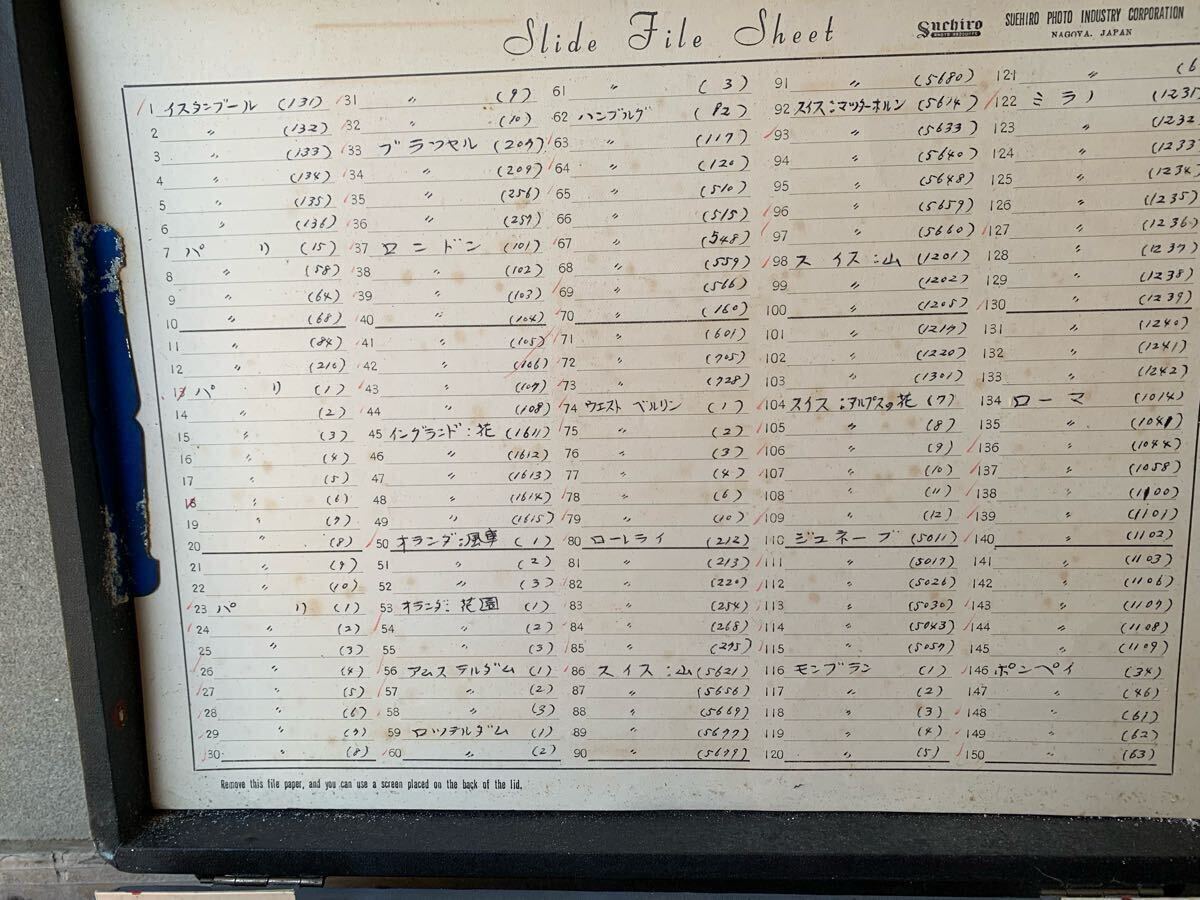 Slide File Sheet
Suehiro
PHOTO PRODUCTS
SUEHIRO PHOTO INDUSTRY CORPORATION
NAGOYA, JAPAN
1 イスタンブール (131)
2 〃 (132)
3 〃 (133)
4 〃 (134)
5 〃 (135)
6 〃 (136)
7 パリ (15)
8 〃 (58)
9 〃 (64)
10 〃 (68)
11 〃 (84)
12 〃 (210)
13 パリ (1)
14 〃 (2)
15 〃 (3)
16 〃 (4)
17 〃 (5)
18 〃 (6)
19 〃 (7)
20 〃 (8)
21 〃 (9)
22 〃 (10)
23 パリ (1)
24 〃 (2)
25 〃 (3)
26 〃 (4)
27 〃 (5)
28 〃 (6)
29 〃 (7)
30 〃 (8)
31 〃 (9)
32 〃 (10)
33 ブラッセル (207)
34 〃 (209)
35 〃 (256)
36 〃 (257)
37 ロンドン (101)
38 〃 (102)
39 〃 (103)
40 〃 (104)
41 〃 (105)
42 〃 (106)
43 〃 (107)
44 〃 (108)
45 イングランド:花 (1611)
46 〃 (1612)
47 〃 (1613)
48 〃 (1614)
49 〃 (1615)
50 オランダ:風車 (1)
51 〃 (2)
52 〃 (3)
53 オランダ:花園 (1)
54 〃 (2)
55 〃 (3)
56 アムステルダム (1)
57 〃 (2)
58 〃 (3)
59 ロッテルダム (1)
60 〃 (2)
61 〃 (3)
62 ハンブルグ (82)
63 〃 (117)
64 〃 (120)
65 〃 (510)
66 〃 (515)
67 〃 (548)
68 〃 (559)
69 〃 (566)
70 〃 (160)
71 〃 (601)
72 〃 (705)
73 〃 (728)
74 ウエストベルリン (1)
75 〃 (2)
76 〃 (3)
77 〃 (4)
78 〃 (6)
79 〃 (10)
80 ローレライ (212)
81 〃 (213)
82 〃 (220)
83 〃 (254)
84 〃 (268)
85 〃 (275)
86 スイス:山 (5621)
87 〃 (5656)
88 〃 (5669)
89 〃 (5677)
90 〃 (5679)
91 〃 (5680)
92 スイス:マッターホルン (5614)
93 〃 (5633)
94 〃 (5640)
95 〃 (5648)
96 〃 (5659)
97 〃 (5660)
98 スイス:山 (1201)
99 〃 (1202)
100 〃 (1205)
101 〃 (1217)
102 〃 (1220)
103 〃 (1301)
104 スイス:アルプスの花 (7)
105 〃 (8)
106 〃 (9)
107 〃 (10)
108 〃 (11)
109 〃 (12)
110 ジュネーブ (5011)
111 〃 (5017)
112 〃 (5026)
113 〃 (5030)
114 〃 (5043)
115 〃 (5057)
116 モンブラン (1)
117 〃 (2)
118 〃 (3)
119 〃 (4)
120 〃 (5)
121 〃 (6
122 ミラノ (1231)
123 〃 (1232)
124 〃 (1233)
125 〃 (1234)
126 〃 (1235)
127 〃 (1236)
128 〃 (1237)
129 〃 (1238)
130 〃 (1239)
131 〃 (1240)
132 〃 (1241)
133 〃 (1242)
134 ローマ (1014)
135 〃 (1041)
136 〃 (1044)
137 〃 (1058)
138 〃 (1100)
139 〃 (1101)
140 〃 (1102)
141 〃 (1103)
142 〃 (1106)
143 〃 (1107)
144 〃 (1108)
145 〃 (1109)
146 ポンペイ (34)
147 〃 (46)
148 〃 (61)
149 〃 (62)
150 〃 (63)
Remove this file paper, and you can use a screen placed on the back of the lid.